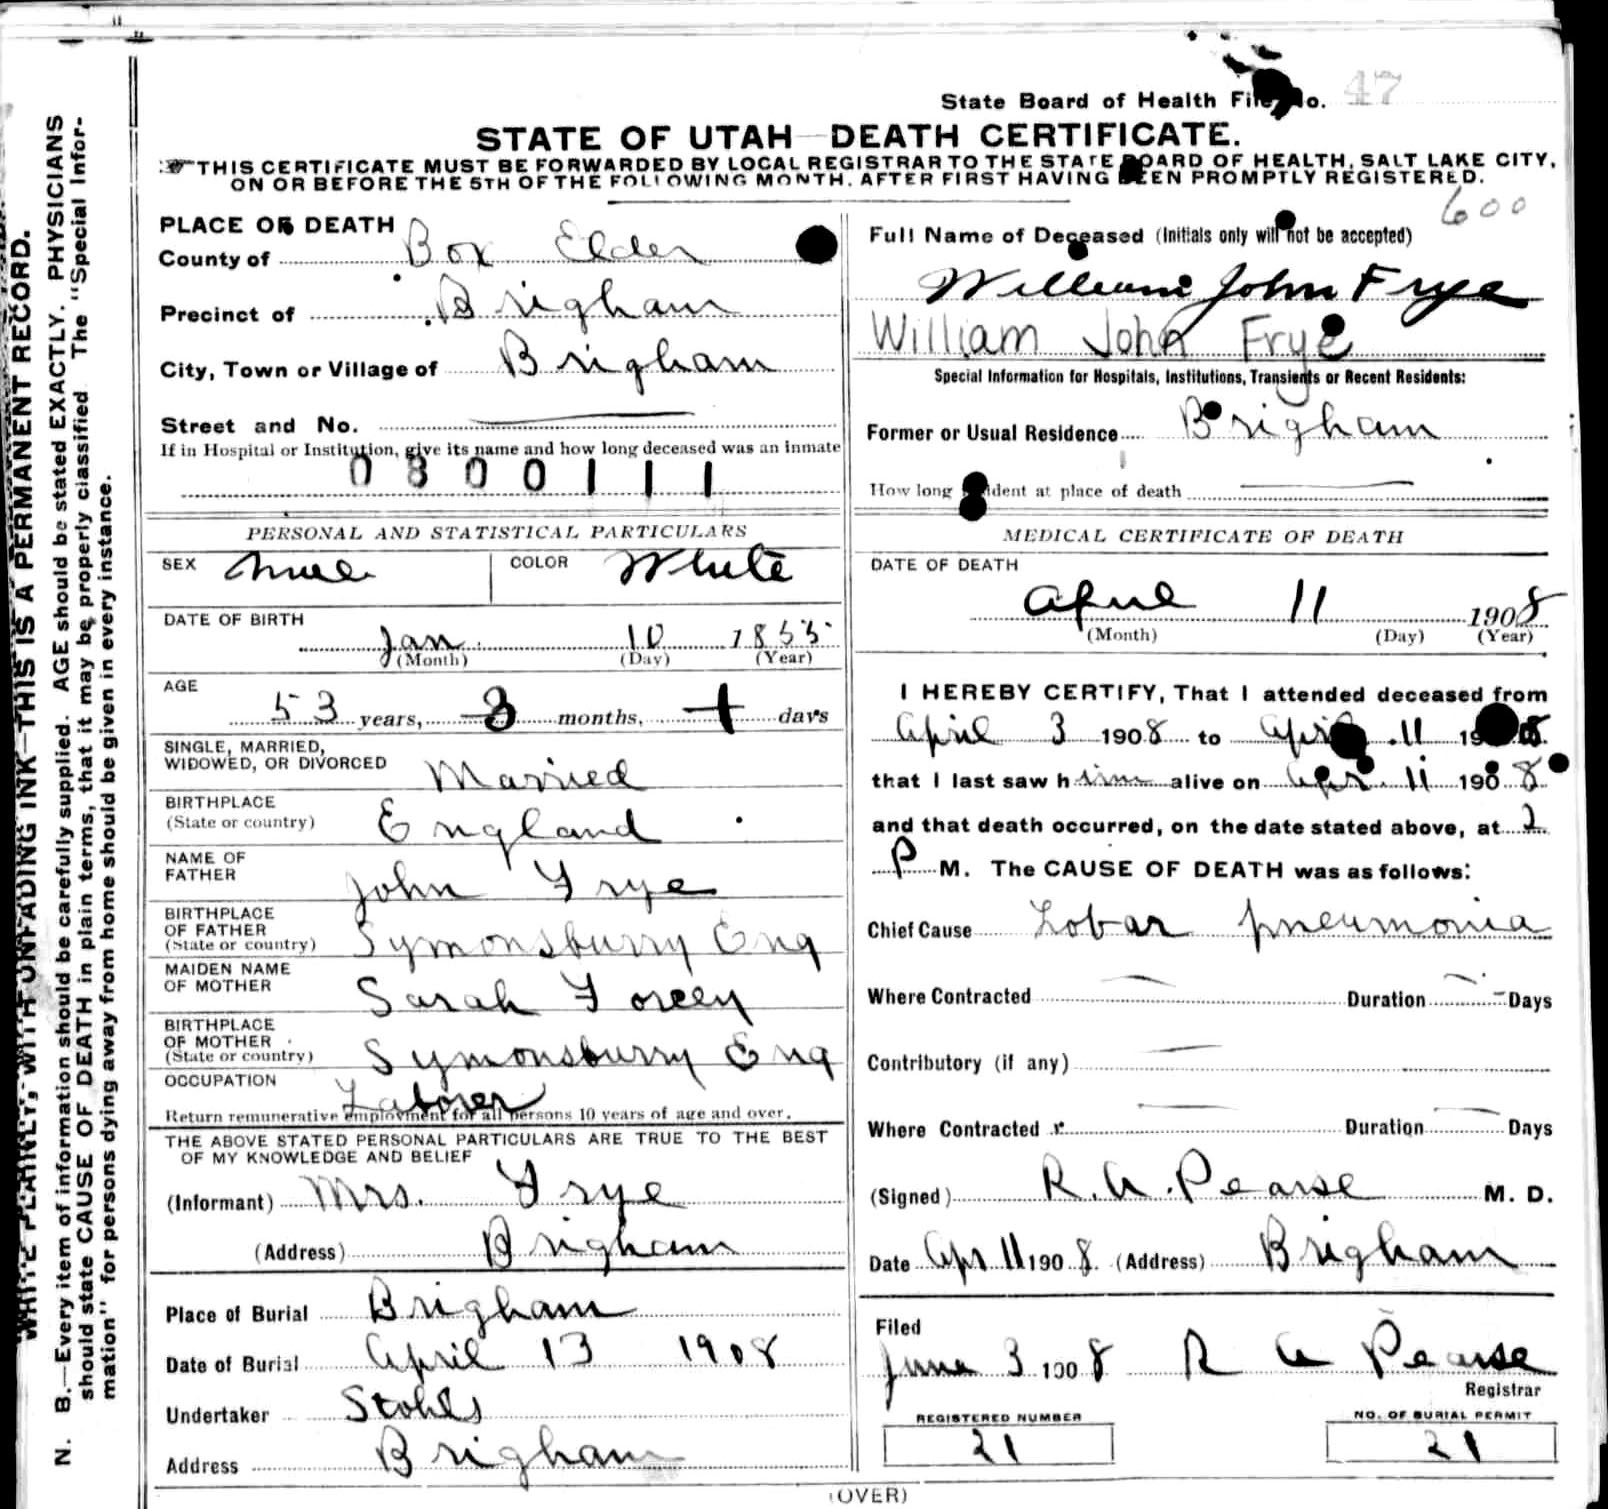 State Board of Health File No. 47
STATE OF UTAH—DEATH CERTIFICATE.
THIS CERTIFICATE MUST BE FORWARDED BY LOCAL REGISTRAR TO THE STATE BOARD OF HEALTH, SALT LAKE CITY,
ON OR BEFORE THE 5TH OF THE FOLLOWING MONTH, AFTER FIRST HAVING BEEN PROMPTLY REGISTERED.
600
PLACE OF DEATH
County of Box Elder
Precinct of Brigham
City, Town or Village of Brigham
Street and No.
If in Hospital or Institution, give its name and how long deceased was an inmate
0800111
PERSONAL AND STATISTICAL PARTICULARS
SEX Male COLOR White
DATE OF BIRTH
Jan. 10 1855
(Month) (Day) (Year)
AGE
53 years, 3 months, 1 days
SINGLE, MARRIED,
WIDOWED, OR DIVORCED Married
BIRTHPLACE
(State or country) England
NAME OF
FATHER John Frye
BIRTHPLACE
OF FATHER
(State or country) Symonsburry Eng
MAIDEN NAME
OF MOTHER Sarah
BIRTHPLACE
OF MOTHER
(State or country) Symonsburry Eng
OCCUPATION Laborer
Return remunerative employment for all persons 10 years of age and over.
THE ABOVE STATED PERSONAL PARTICULARS ARE TRUE TO THE BEST
OF MY KNOWLEDGE AND BELIEF
(Informant) Mrs. Frye
(Address) Brigham
Place of Burial Brigham
Date of Burial April 13 1908
Undertaker Stohls
Address Brigham
Full Name of Deceased (Initials only will not be accepted)
William John Frye
William John Frye
Special Information for Hospitals, Institutions, Transients or Recent Residents:
Former or Usual Residence Brigham
How long resident at place of death
MEDICAL CERTIFICATE OF DEATH
DATE OF DEATH
April 11 1908
(Month) (Day) (Year)
I HEREBY CERTIFY, That I attended deceased from
April 3 1908 to April 11 1908
that I last saw him alive on Apr. 11 1908
and that death occurred, on the date stated above, at 2
P M. The CAUSE OF DEATH was as follows:
Chief Cause Lobar pneumonia
Where Contracted Duration Days
Contributory (if any)
Where Contracted Duration Days
(Signed) R. A. Pearse M. D.
Date Apr 11 1908. (Address) Brigham
Filed
June 3 1908 R A Pearse
Registrar
REGISTERED NUMBER
21
NO. OF BURIAL PERMIT
21
(OVER)
WRITE PLAINLY, WITH UNFADING INK—THIS IS A PERMANENT RECORD.
N. B.—Every item of information should be carefully supplied. AGE should be stated EXACTLY. PHYSICIANS
should state CAUSE OF DEATH in plain terms, that it may be properly classified The "Special Infor-
mation" for persons dying away from home should be given in every instance.